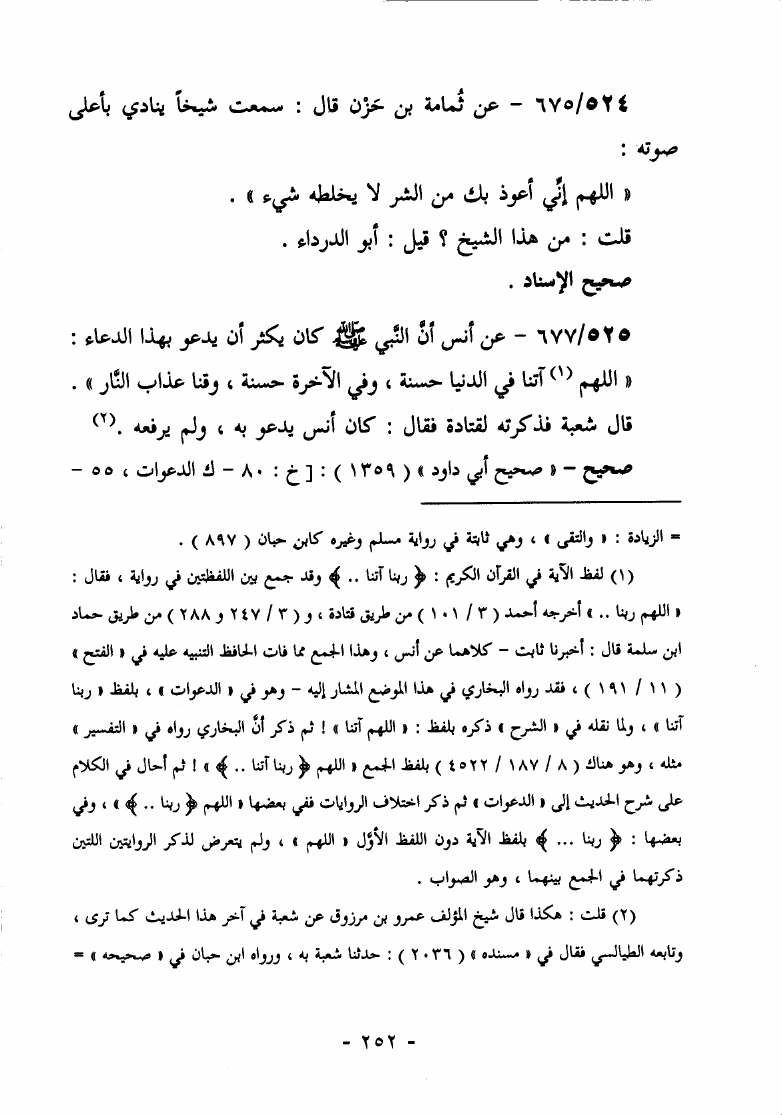 ٦٧٥/٥٢٤ - عن ثُمامة بن حَزْن قال : سمعت شيخاً ينادي بأعلى
صوته :
« اللهم إنِّي أعوذ بك من الشر لا يخلطه شيء » .
قلت : من هذا الشيخ ؟ قيل : أبو الدرداء .
صحيح الإسناد .
٦٧٧/٥٢٥ - عن أنس أنَّ النَّبي ﷺ كان يكثر أن يدعو بهذا الدعاء :
« اللهم (١) آتنا في الدنيا حسنة ، وفي الآخرة حسنة ، وقنا عذاب النَّار » .
قال شعبة فذكرته لقتادة فقال : كان أنس يدعو به ، ولم يرفعه .(٢)
صحيح - « صحيح أبي داود » ( ١٣٥٩ ) : [ خ : ٨٠ - ك الدعوات ، ٥٥ -
= الزيادة : « والتقى » ، وهي ثابتة في رواية مسلم وغيره كابن حبان ( ٨٩٧ ) .
(١) لفظ الآية في القرآن الكريم : ﴿ ربنا آتنا .. ﴾ وقد جمع بين اللفظتين في رواية ، فقال :
« اللهم ربنا .. » أخرجه أحمد ( ٣ / ١٠١ ) من طريق قتادة ، و ( ٣ / ٢٤٧ و ٢٨٨ ) من طريق حماد
ابن سلمة قال : أخبرنا ثابت - كلاهما عن أنس ، وهذا الجمع مما فات الحافظ التنبيه عليه في « الفتح »
( ١١ / ١٩١ ) ، فقد رواه البخاري في هذا الموضع المشار إليه - وهو في « الدعوات » ، بلفظ « ربنا
آتنا » ، ولما نقله في « الشرح » ذكره بلفظ : « اللهم آتنا » ! ثم ذكر أنَّ البخاري رواه في « التفسير »
مثله ، وهو هناك ( ٨ / ١٨٧ / ٤٥٢٢ ) بلفظ الجمع « اللهم ﴿ ربنا آتنا .. ﴾ » ! ثم أحال في الكلام
على شرح الحديث إلى « الدعوات » ثم ذكر اختلاف الروايات ففي بعضها « اللهم ﴿ ربنا .. ﴾ » ، وفي
بعضها : ﴿ ربنا ... ﴾ بلفظ الآية دون اللفظ الأوَّل « اللهم » ، ولم يتعرض لذكر الروايتين اللتين
ذكرتهما في الجمع بينهما ، وهو الصواب .
(٢) قلت : هكذا قال شيخ المؤلف عمرو بن مرزوق عن شعبة في آخر هذا الحديث كما ترى ،
وتابعه الطيالسي فقال في « مسنده » ( ٢٠٣٦ ) : حدثنا شعبة به ، ورواه ابن حبان في « صحيحه » =
- ٢٥٢ -